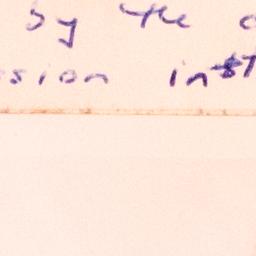 by the
ssion inst